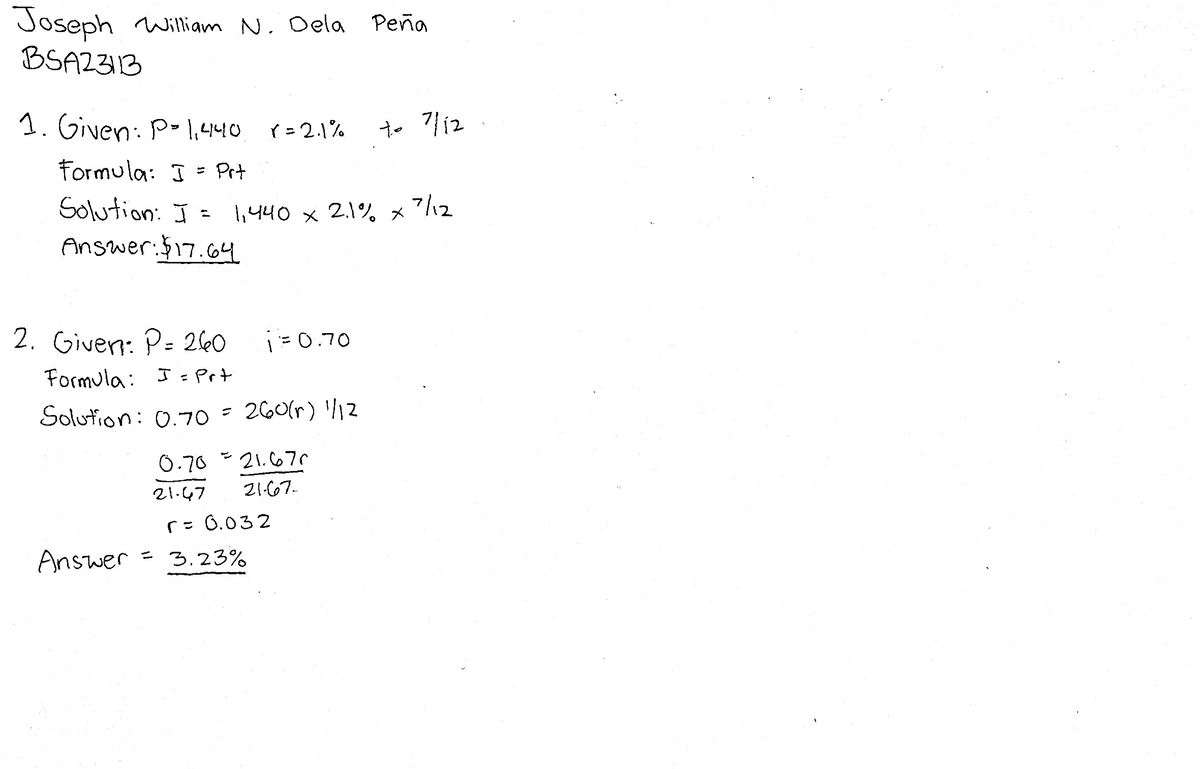 Joseph William N. Dela Peña
BSA23113
1. Given: P= 1,440 r = 2.1% t= 7/12
Formula: I = Prt
Solution: I = 1,440 x 2.1% x 7/12
Answer: $17.64
2. Given: P= 260 i = 0.70
Formula: I = Prt
Solution: 0.70 = 260(r) 1/12
0.70 = 21.67r
21.67 21.67
r = 0.032
Answer = 3.23%